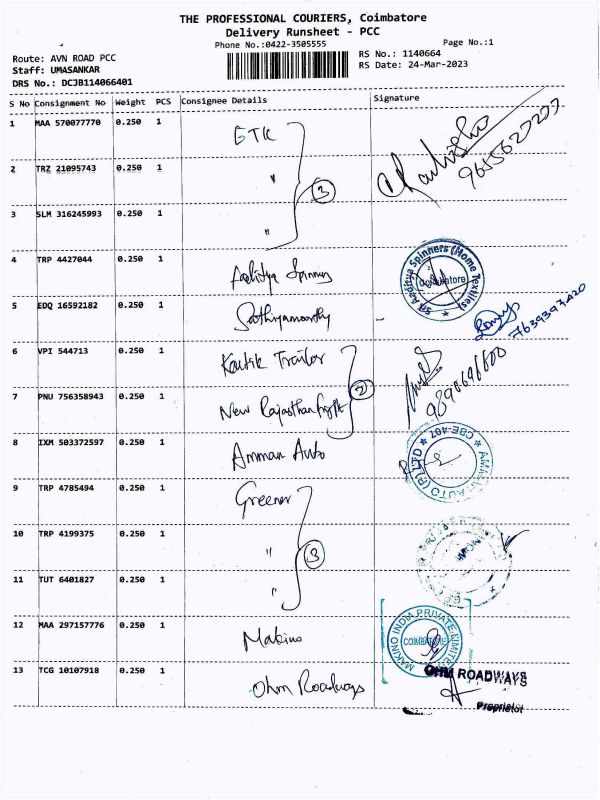 THE PROFESSIONAL COURIERS, Coimbatore
Delivery Runsheet - PCC
Phone No.:0422-3505555 Page No.:1
Route: AVN ROAD PCC RS No.: 1140664
Staff: UMASANKAR RS Date: 24-Mar-2023
DRS No.: DCJB114066401
S No Consignment No Weight PCS Consignee Details Signature
1 MAA 570077770 0.250 1 GTK
9655627207
2 TRZ 21095743 0.250 1 " 3
3 SLM 316245993 0.250 1 "
4 TRP 4427044 0.250 1 Aaditya Spinners
Sri Aaditya Spinners (Home Textiles) Coimbatore
5 EDQ 16592182 0.250 1 Sathiyamoorthy -
7639397420
6 VPI 544713 0.250 1 Kartik Trailor
7 PNU 756358943 0.250 1 New Rajasthan 2
8 IXM 503372597 0.250 1 Amman Auto
AMMAN AUTO (P) LTD ★ CBE-407 ★
9 TRP 4785494 0.250 1 Greener
10 TRP 4199375 0.250 1 " 3
11 TUT 6401827 0.250 1 "
12 MAA 297157776 0.250 1 Makino
MAKINO INDIA PRIVATE LIMITED COIMBATORE
13 TCG 10107918 0.250 1 Ohm Roadways
OHM ROADWAYS
Proprietor